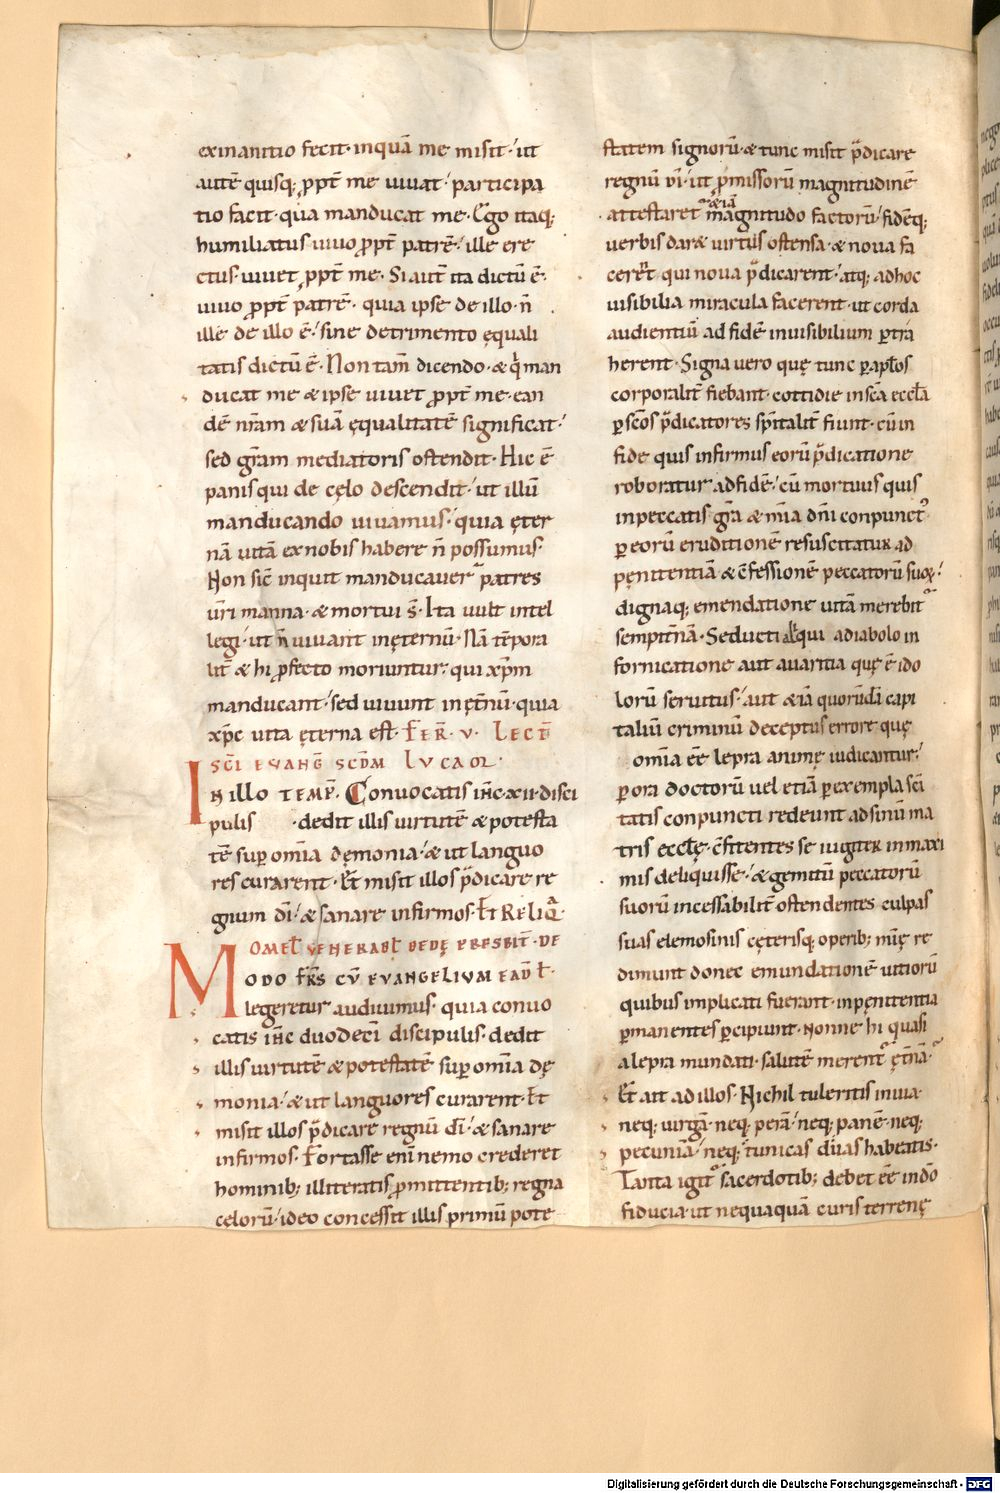 exinanitio fecit· inquā me misit· ut
autē quisq; ꝓpt̄ me uiuat· participa
tio facit· qua manducat me· Ergo itaq;
humiliatus uiuo ꝓpt̄ patrē· ille ere
ctus· uiuet ꝓpt̄ me· Si aut̄ ita dictū ē·
uiuo ꝓpt̄ patrē· quia ipse de illo· n̄
ille de illo ē· sine detrimento ęquali
tatis dictū ē· Non tam̄ dicendo· & qͥ man
ducat me & ipse uiuet ꝓpt̄ me· ean
dē nr̄am & suā ęqualitatē significat·
sed gr̄am mediatoris ostendit· Hic ē
panis qui de cęlo descendit· ut illū
manducando uiuamus· quia ęter
nā uitā ex nobis habere n̄ possumus·
Non sic̄ inquit manducauer̄ patres
ur̄i manna· & mortui s̄· Ita uult intel
legi· ut n̄ uiuant inęternū· Nā tēpora
lit̄ & hi ꝓfecto moriuntur· qui xp̄m
manducant· sed uiuunt inęt̄nū· quia
xp̄c uita ęterna est· FER̄· V· LECT̄
SC̄I EVANḠ SCD̄M LVCAM·
In illo TEMP̄· Conuocatis ih̄c xii· disci
pulis ·dedit illis uirtutē & potesta
tē sup̄ om̄ia dęmonia· & ut languo
res curarent· Et misit illos p̄dicare re
gnum dī· & sanare infirmos· Et RELIQ̄·
OMEL̄ VENERABL̄ BEDĘ PRESBIT̄· DE
MODO FR̄S CŪ EVANGELIVM EAD̄ L̄·
legeretur audiuimus· quia conuo
catis ih̄c duodecī discipulis· dedit
illis uirtutē & potestatē sup̄ om̄ia dę
monia· & ut languores curarent· Et
misit illos p̄dicare regnū dī· & sanare
infirmos· Fortasse enī nemo crederet
hominib; illiteratis ꝓmittentib; regna
celorū· ideo concessit illis primū pote
statem signorū· & tunc misit p̄dicare
regnū dī· ut ꝓmissorū magnitudinē
attestaret᷑ &iā magnitudo factorū· fidēq;
uerbis dar& uirtus ostensa· & noua fa
cerent qui noua p̄dicarent· atq; adhoc
uisibilia miracula facerent· ut corda
audientiū ad fidē inuisibilium ꝑtra
herent· Signa uero quę tunc ꝑ apl̄os
corporalit̄ fiebant· cottidie in sc̄a eccl̄a
ꝑ sc̄os p̄dicatores spītalit̄ fiunt· cū in
fide quis infirmus eorū p̄dicatione
roboratur ad fidē· cū mortuus quis
in peccatis· gr̄a & mīa dn̄i conpunct᷒
ꝑ eorū eruditionē resuscitatur ad
pęnitentiā & c̄fessionē peccatorū suoꝝ·
dignaq; emendatione uitā merebit᷑
sempit̄nā· Seducti aliqui a diabolo in
fornicatione aut auaritia quę ē ido
lorū seruitus· aut &iā quorūdā capi
taliū criminū deceptus errore quę
om̄ia ēē lepra animę iudicantur·
ꝑ ora doctorū uel etiā ꝑ exempla sc̄i
tatis conpuncti redeunt ad sinū ma
tris eccl̄ę· c̄fitentes se iugiter in maxi
mis deliquisse· & gemitū peccatorū
suorū incessabilit̄ ostendentes culpas
suas elemosinis cęterisq; operib; mīę re
dimunt donec emundationē uitiorū
quibus implicati fuerant· in pęnitentia
ꝑmanentes ꝑcipiunt· Nonne hi quasi
a lepra mundati· salutē merent᷑ ęt̄nā·
Et ait ad illos· Nichil tuleritis in uia·
neq; uirgā· neq; perā· neq; panē· neq;
pecuniā· neq; tunicas duas habeatis·
Tanta igit᷑ sacerdotib; debet ēē in dō
fiducia· ut nequaquā curis terrenę
Digitalisierung gefördert durch die Deutsche Forschungsgemeinschaft - DFG